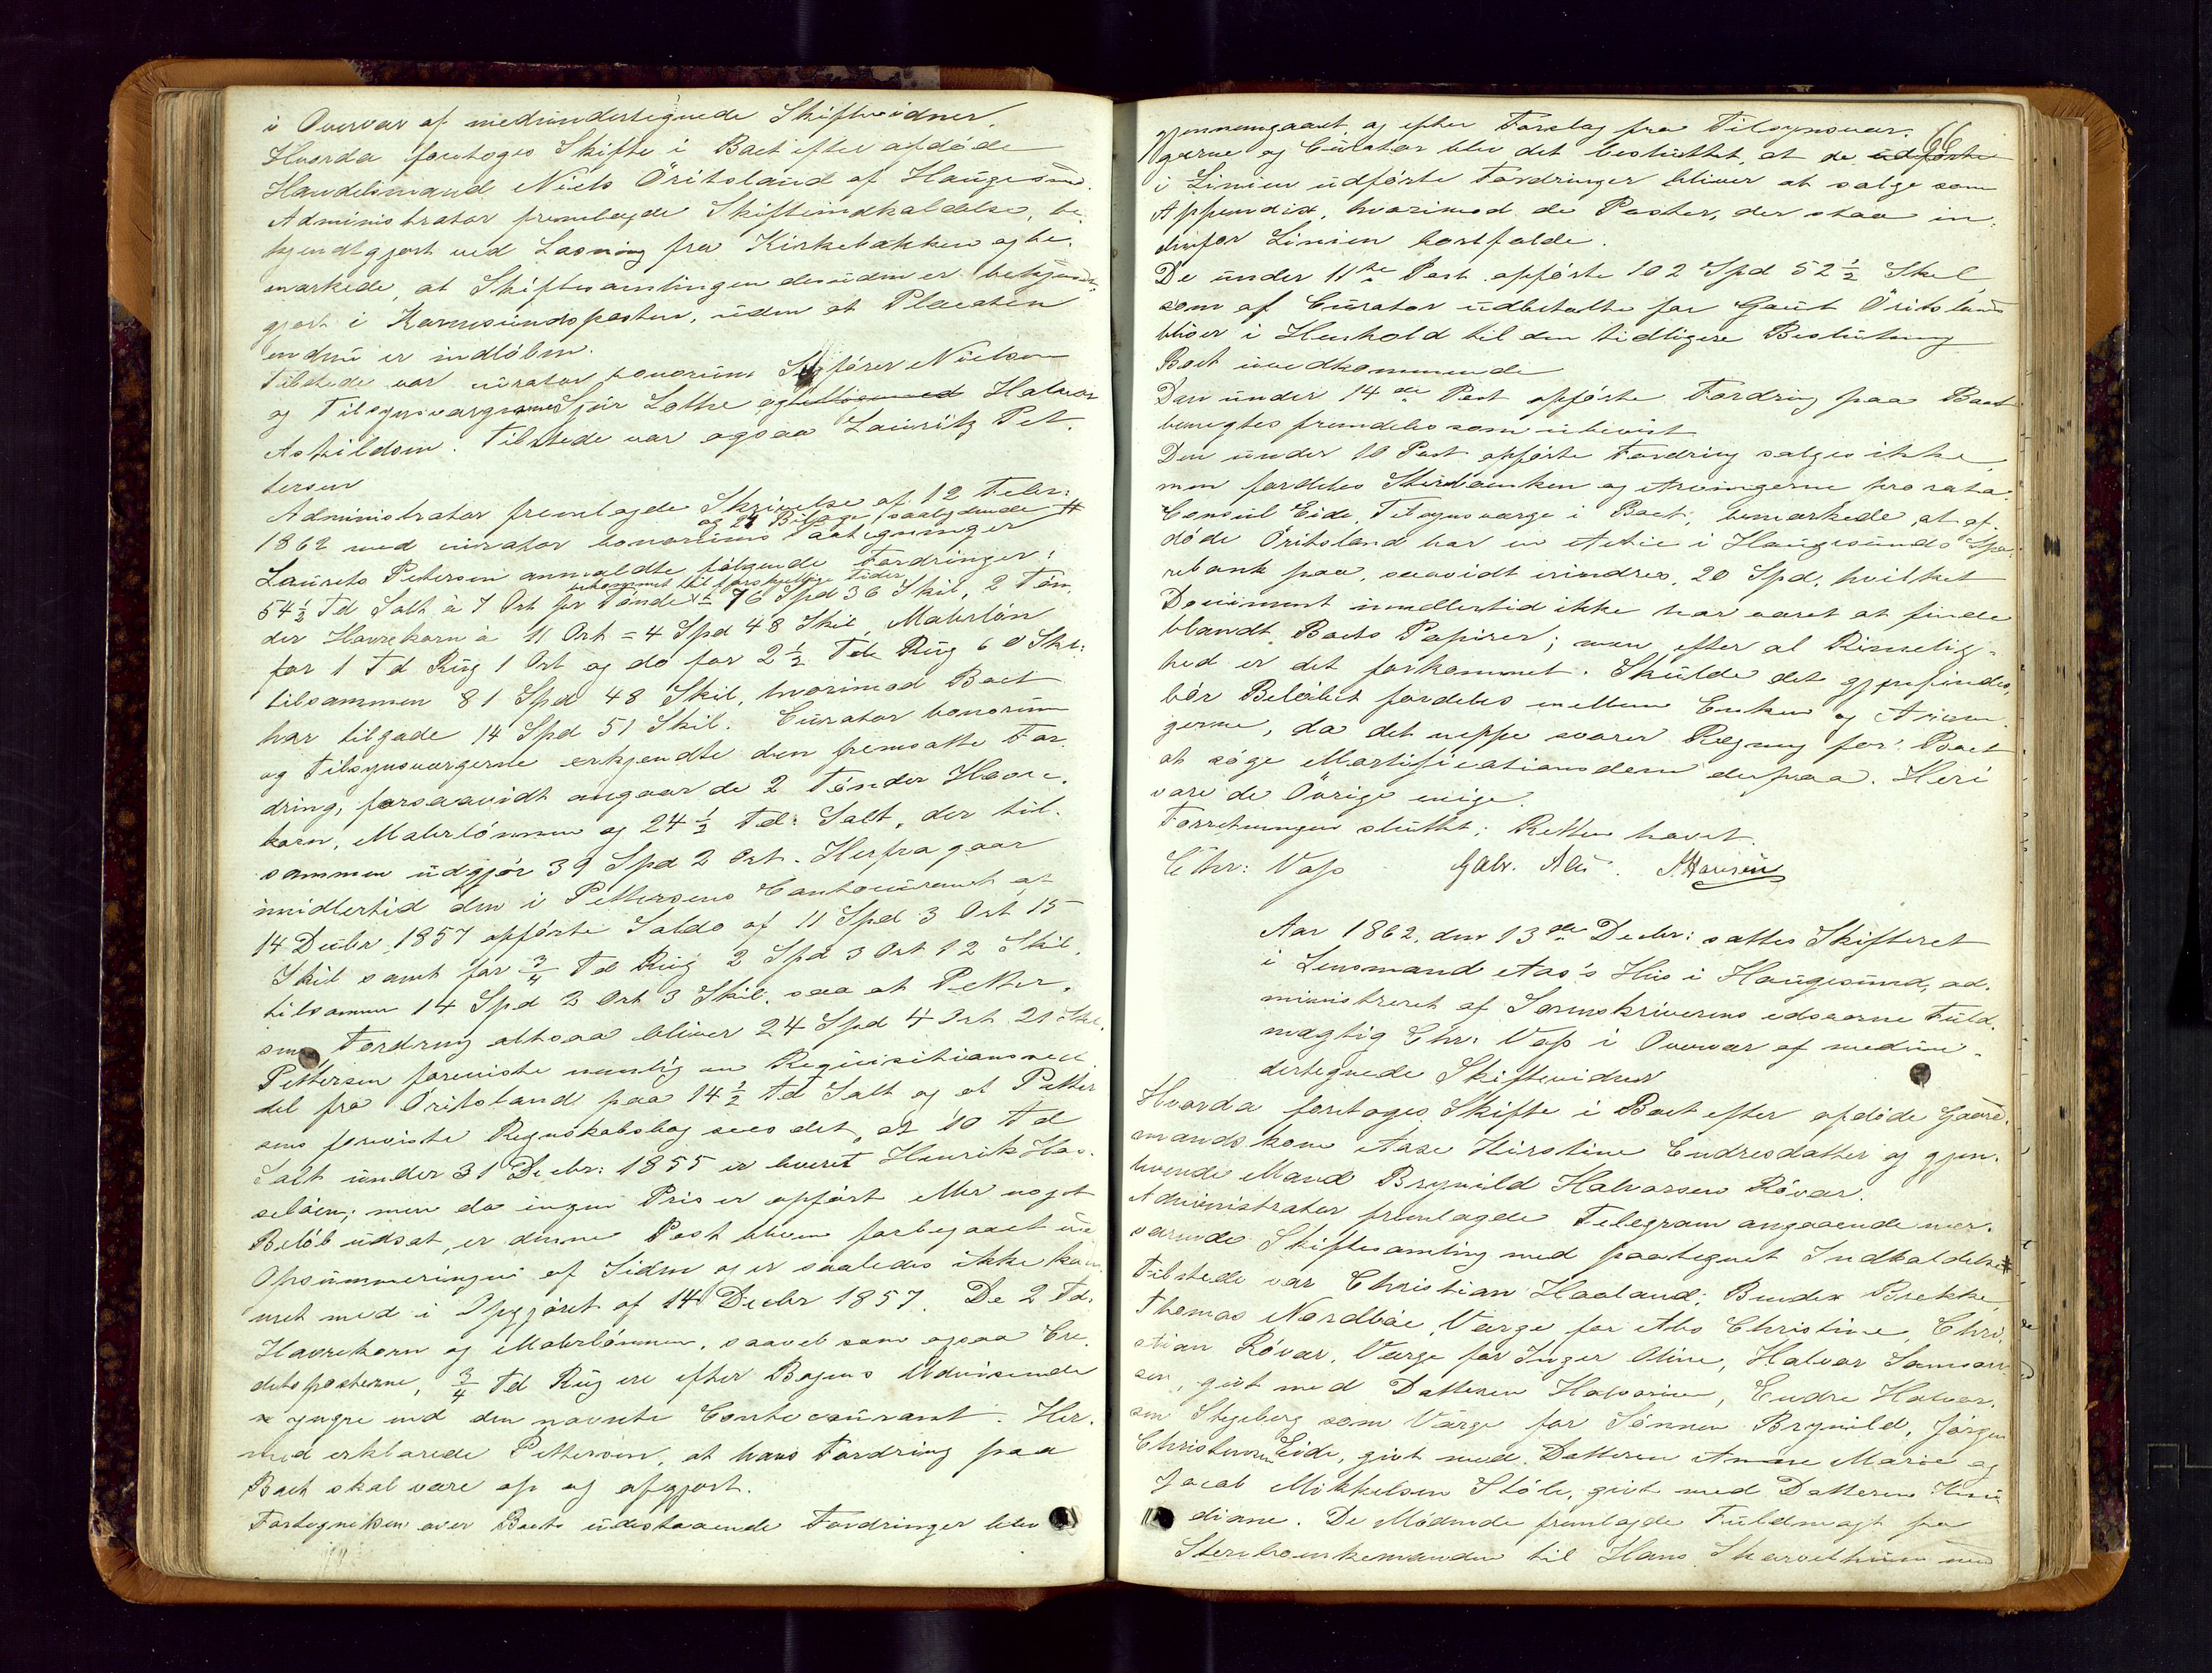 i Overvær af medundertegnede Skiftevidner.
Hvorda foretoges Skifte i Boet efter afdøde
Handelsmand Niels Öritsland af Haugesund.
Administrator fremlagde Skifteindkaldelse, be-
kjendtgjort ved Læsning fra Kirkebakken og be-
mærkede, at Skiftesamlingen desuden er bekjendt-
gjort i Karmsundsposten, uden at Placaten
endnu er indløben.
Tilstede var curator bonorum Sagfører Nielsen
og Tilsynsværgerne Sjur Lothe og Halvor
Askildsen. Tilstede var ogsaa Lauritz Pet-
tersen
Administrator fremlagde Skrivelse af 12 Febr:
og 24 Bilage, saalydende #
1862 med curator bonorums Paategninger
Laurits Petersen anmeldte følgende Fordringer:
bekommet til forskjellige Tider
54½ Td Salt à 7 Ort pr Tønde = 76 Spd 36 Skil, 2 Tøn-
der Havrekorn à 11 Ort = 4 Spd 48 Skil, Malerløn
for 1 Td Rug 1 Ort og do for 2½ Td Rug 60 Skil:
tilsammen 81 Spd 48 Skil, hvorimod Boet
har tilgode 14 Spd 51 Skil. Curator bonorum
og Tilsynsværgerne erkjendte den fremsatte For-
dring, forsaavidt angaar de 2 Tønder Havre-
korn, Malerlønnen og 24½ Td: Salt, der til-
sammen udgjør 39 Spd 2 Ort. Herfra gaar
imidlertid den i Pettersens Contocurant af
14 Decbr 1857 opførte Saldo af 11 Spd 3 Ort 15
Skil samt for ¾ Td Rug 2 Spd 3 Ort 12 Skil,
tilsammen 14 Spd 2 Ort 3 Skil. saa at Petter-
sens Fordring altsaa bliver 24 Spd 4 Ort 21 Skil.
Pettersen foreviste nemlig en Requisitionssed-
del fra Öritsland paa 14½ Td Salt og af Petter
sens foreviste Regnskabsbog sees det, at 10 Td
Salt under 31 Decbr: 1855 er leveret Henrik Has-
seløen; men da ingen Pris er opført eller noget
Beløb udsat, er denne Post bleven forbigaaet ved
Opsummeringen af Siden og er saaledes ikke kom-
met med i Opgjøret af 14 Decbr 1857. De 2 Td:
Havrekorn og Malerlønnen, saavel som ogsaa Cre-
ditposterne, ¾ Td Rug ere efter Bogens Udvisende
yngre end den nævnte Contocourant. Her-
med erklærede Pettersen, at hans Fordring paa
Boet skal være op og afgjort.
Fortegnelsen over Boets udestaaende Fordringer blev
66
gjennemgaaet, og efter Forslag fra Tilsynsvær-
gerne og Curator blev det besluttet, at de udførte
i Linien udførte Fordringer bliver at sælge som
Appendix, hvorimod de Poster, der staa in-
denfor Linien bortfalde.
De under 11te Post opførte 102 Spd 52½ Skil,
som af Curator udbetalte for Gaut Öritsland
bliver i Henhold til den tidligere Beslutning
Boet uvedkommende
Den under 14de Post opførte Fordring paa Boet
benegtes fremdeles som ubevist
Den under 10 Post opførte Fordring sælges ikke,
men fordeles Stervboenken og Arvingerne pro rata.
Consul Eide, Tilsynsværge i Boet, bemærkede, at af-
døde Öritsland har en Actie i Haugesunds Spa-
rebank paa, saavidt erindres, 20 Spd, hvilket
Document imidlertid ikke har været at finde
blandt Boets Papirer; men efter al Rimelig-
hed er det forkommet. Skulde det gjenfindes,
bør Beløbet fordeles mellem Enken og Arvin-
gerne, da det neppe svarer Regning for Boet
at søge Mortificationsdom derpaa. Heri
vare de Övrige enige.
Forretningen sluttet; Retten hævet.
Chr: Vass Halv. Aas. S Hansen
Aar 1862, den 13de Decbr: sattes Skifteret
i Lensmand Aas's Hus i Haugesund, ad-
ministreret af Sorenskriverens edsvorne Fuld-
mægtig Chr: Vass i Overvær af medun-
dertegnede Skiftevidner
Hvorda foretoges Skifte i Boet efter afdøde Gaard-
mandskone Aase Kirstine Endresdatter og gjen-
levende Mand Brynild Halvorsen Røvær.
Administrator fremlagde Telegram angaaende nær-
værende Skiftesamling med paategnet Indkaldelse #
Tilstede var Christian Haaland, Bendix Brekke,
Thomas Nordbøe, Værge for Abs Christine, Chri-
stian Røvær, Værge for Inger Oline, Halvor Samson-
sen, givt med Datteren Halvorine, Endre Halvor-
sen Stegeberg som Værge for Sønnen Brynild, Jørgen
Christensen Eide, givt med Datteren Anne Marie og
Jacob Mikkelsen Støle, givt med Datteren Knu-
diane. De Mødende fremlagde Fuldmagt fra
Stervboenkemanden til Hans med